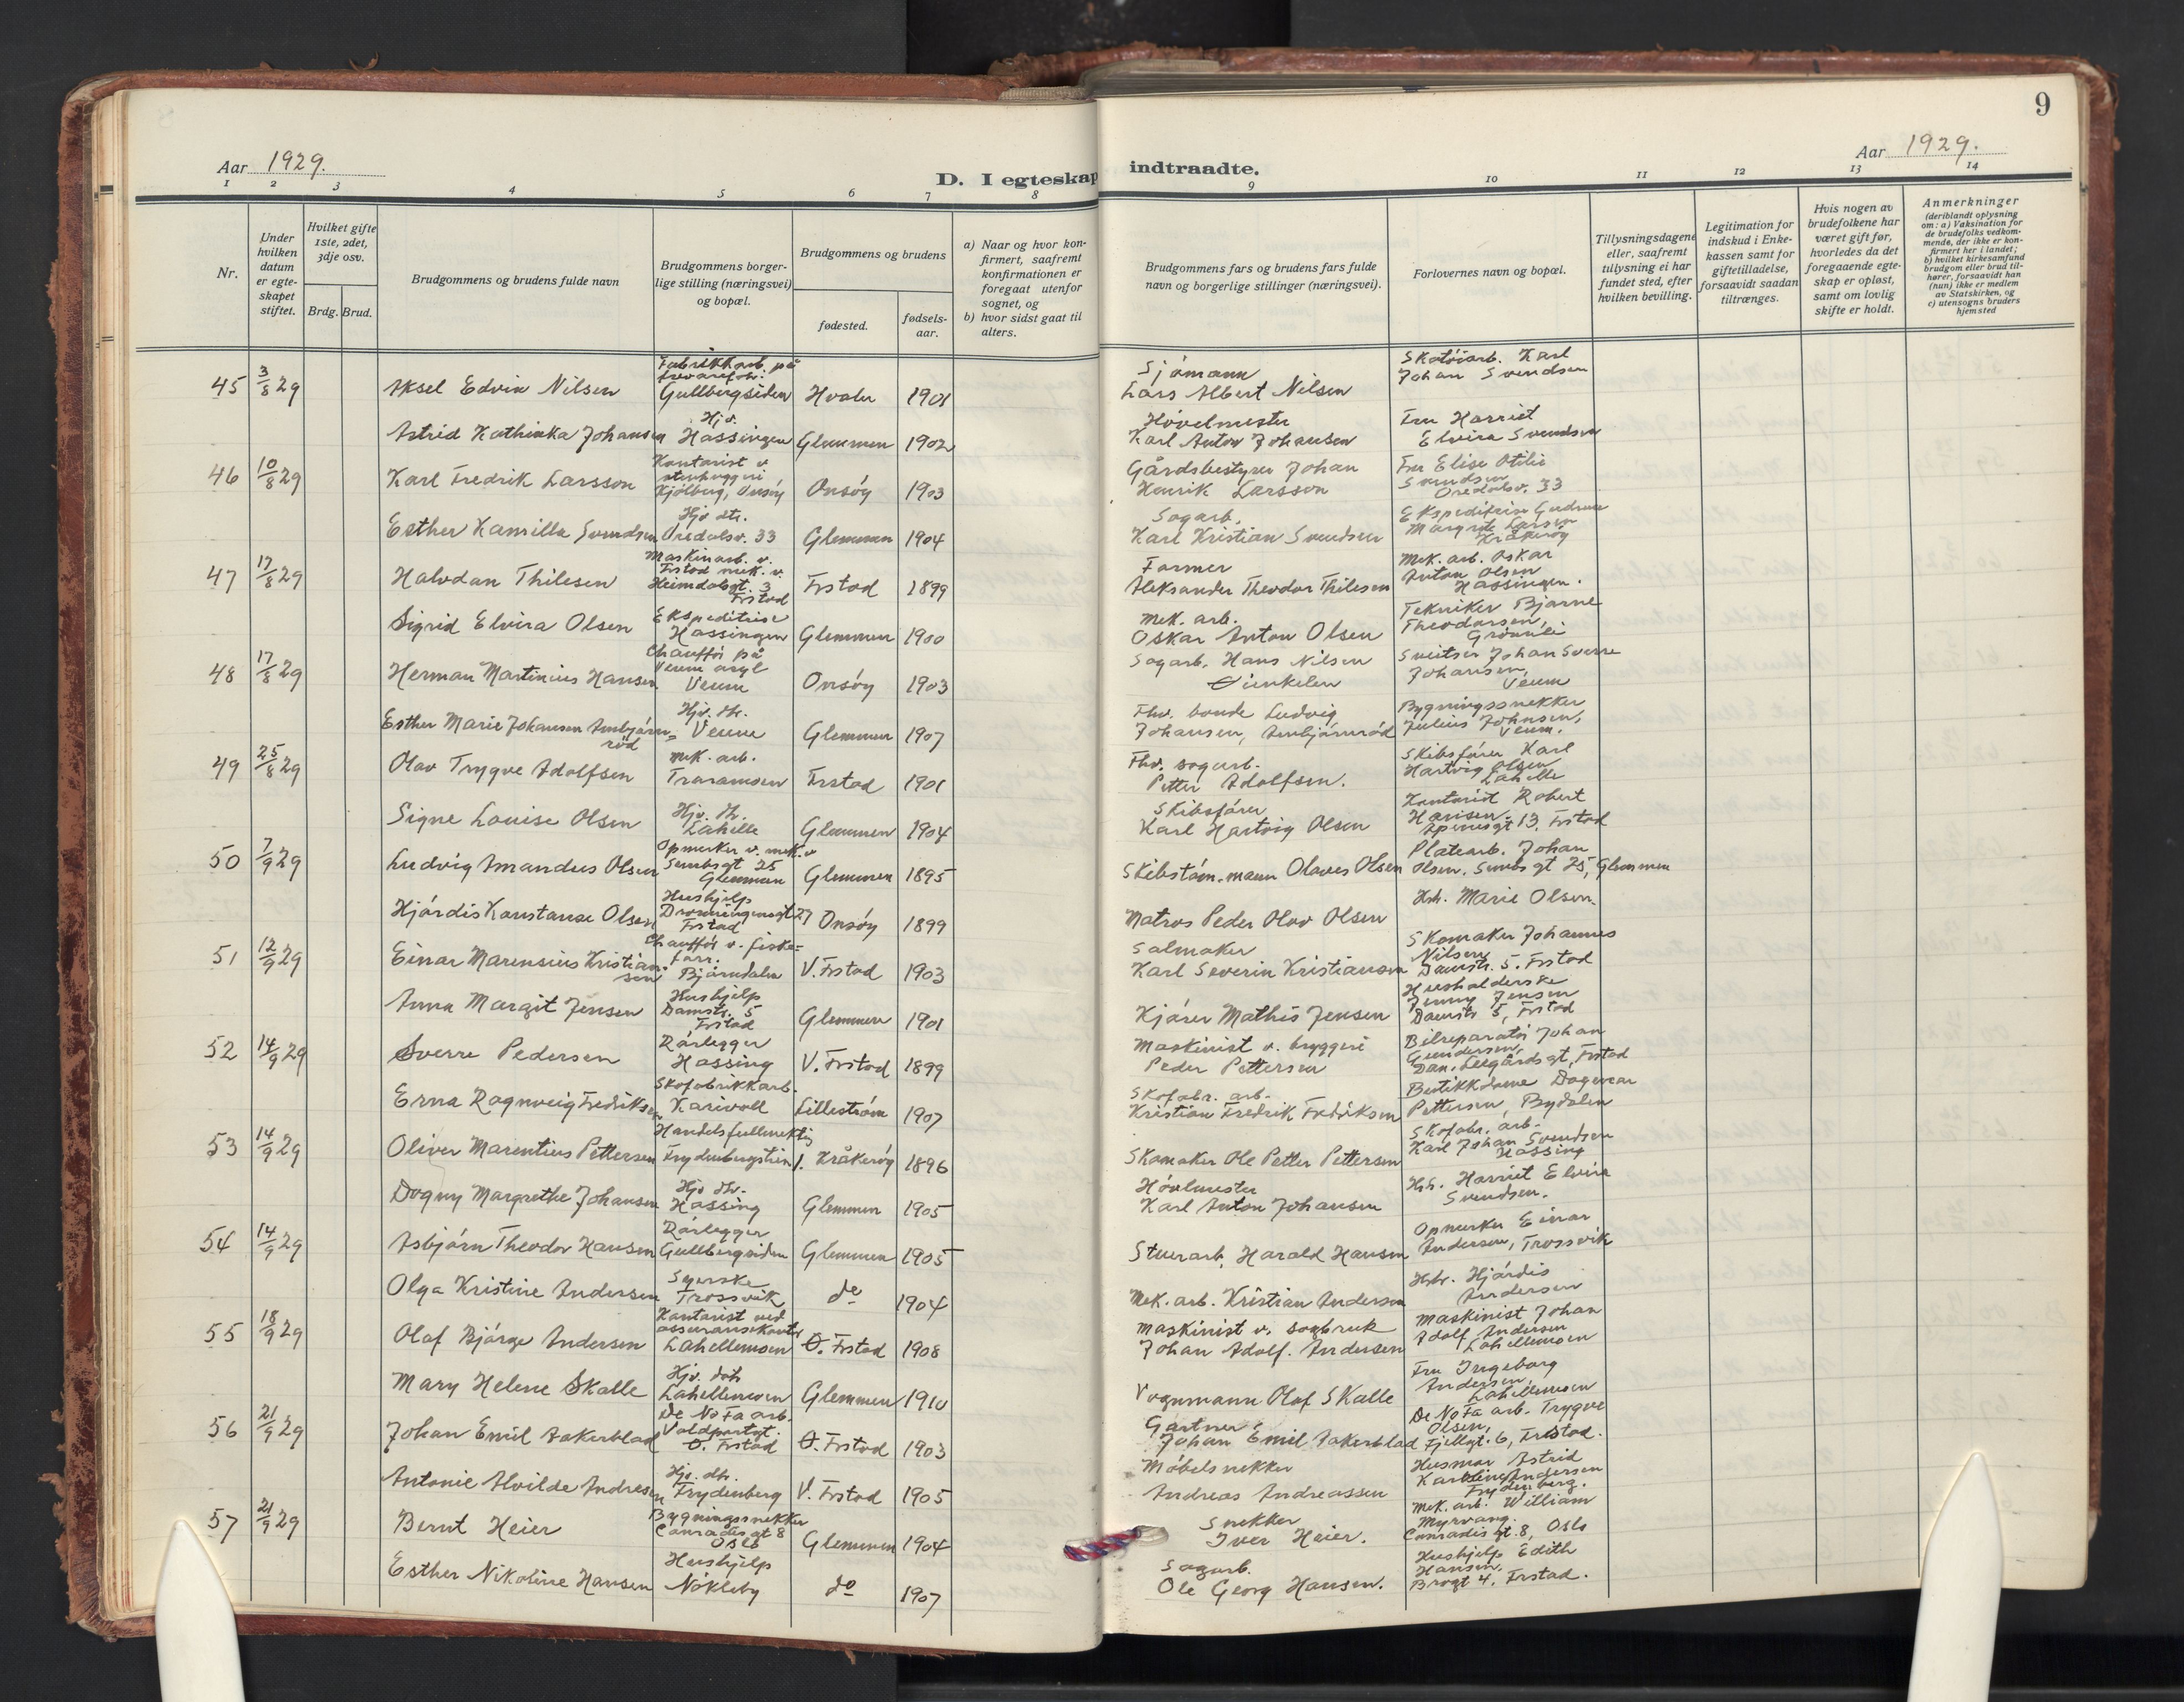 9
Aar 1929.
D. I egteskap indtraadte.
Aar 1929.
1 2 3 4 5 6 7 8 9 10 11 12 13 14
Nr.
Under hvilken datum er egteskapet stiftet.
Hvilket gifte 1ste, 2det, 3dje osv.
Brdg. Brud.
Brudgommens og brudens fulde navn
Brudgommens borgerlige stilling (næringsvei) og bopæl.
Brudgommens og brudens
fødested.
fødselsaar.
a) Naar og hvor konfirmert, saafremt konfirmationen er foregaat utenfor sognet, og
b) hvor sidst gaat til alters.
Brudgommens fars og brudens fars fulde navn og borgerlige stillinger (næringsvei).
Forlovernes navn og bopæl.
Tillysningsdagene eller, saafremt tillysning ei har fundet sted, efter hvilken bevilling.
Legitimation for indskud i Enkekassen samt for giftetilladelse, forsaavidt saadan tiltrænges.
Hvis nogen av brudefolkene har været gift før, hvorledes da det foregaaende egteskap er opløst, samt om lovlig skifte er holdt.
Anmerkninger
(deriblandt oplysning om: a) Vaksination for de brudefolks vedkommende, der ikke er konfirmert her i landet; b) hvilket kirkesamfund brudgom eller brud tilhører, forsaavidt han (hun) ikke er medlem av Statskirken, og c) utensogns bruders hjemsted
45 3/8 29 Aksel Edvin Nilsen Fabrikkarb. på Gullbergsiden Hvaler 1901 Sjömann Lars Albert Nilsen Skotöiarb. Karl Johan Svendsen
Astrid Kathinka Johansen Hjv. Hassingen Glemmen 1902 Hövelmester Karl Anton Johansen Fru Harriet Elvira Svendsen
46 10/8 29 Karl Fredrik Larsson Kontorist v. stenhuggeri Kjölberg, Onsöy Onsöy 1903 Gårdsbestyrer Johan Henrik Larsson Fru Elise Otilie Svendsen Oredalsv. 33
Esther Kamilla Svendsen Hjv. dtr. Oredalsv. 33 Glemmen 1904 Sagarb. Karl Kristian Svendsen Ekspeditrise Gudrun Margrete Larsen Kråkeröy
47 17/8 29 Halvdan Thilesen Maskinarb. v. Frstad mek. v. Heimdalsgt. 3 Frstad Frstad 1899 Farmer Aleksander Theodor Thilesen Mek. arb. Oskar Anton Olsen Hassingen.
Sigrid Elvira Olsen Ekspeditrise Hassingen Glemmen 1900 Mek. arb. Oskar Anton Olsen Tekniker Bjarne Theodorsen, Grönnli
48 17/8 29 Herman Martinius Hansen Chaufför på Veum asyl Veum Onsöy 1903 Sagarb. Hans Nilsen Vinkelen Sveitser Johan Sverre Johansen, Veum
Esther Marie Johansen Ambjörnröd Hjv. dtr. Veum Glemmen 1907 Fhv. bonde Ludvig Johansen, Ambjörnröd Bygningssnekker Julius Johnsen, Veum.
49 25/8 29 Olav Trygve Adolfsen Mek. arb. Traramoen Frstad 1901 Fhv. sagarb. Petter Adolfsen. Skibsförer Karl Hartvig Olsen Lahelle
Signe Louise Olsen Hjv. dtr. Lahelle Glemmen 1904 Skibsförer Karl Hartvig Olsen Kontorist Robert Hansen. Apenesgt 13, Frstad
50 7/9 29 Ludvig Amandus Olsen Opmerker v. mek. v Sumbsgt 25 Glemmen Glemmen 1895 Skibstöm.mann Olaves Olsen Platearb. Johan Olsen. Sumbsgt 25, Glemmen
Hjördis Konstanse Olsen Hushjelp Dronningensgt 27 Frstad Onsöy 1899 Matros Peder Olav Olsen Hst. Marie Olsen.
51 12/9 29 Einar Marensius Kristiansen Chauffør v. fiskeforr. Björndalen V. Frstad 1903 Salmaker Karl Severin Kristiansen Skomaker Johannes Nilsen Damstr. 5. Frstad
Anna Margit Jensen Hushjelp Damstr. 5 Frstad Glemmen 1901 Kjörer Mathis Jensen Husholderske Jenny Jensen Damstr 5, Frstad
52 14/9 29 Sverre Pedersen Rörlegger Hassing V. Frstad 1899 Maskinist v. bryggeri Peder Pettersen Bilreparatör Johan Gundersen, Dan. Leegårdsgt, Frstad
Erna Ragnveig Fredriksen Skofabrikkarb. Karivoll Lilleström 1907 Skofabr. arb. Kristian Fredrik Fredriksen Butikkdame Dagmar Pettersen, Bydalen
53 14/9 29 Oliver Marentius Pettersen Handelsfullmektig Frydenbergstien 1. Kråkeröy 1896 Skomaker Ole Petter Pettersen Skofabr. arb. Karl Johan Svendsen Hassing
Dagny Margrethe Johansen Hjv. dtr. Hassing Glemmen 1905 Hövlmester Karl Anton Johansen Hst. Harriet Elvira Svendsen.
54 14/9 29 Asbjörn Theodor Hansen Rörlegger Gullbergsiden Glemmen 1905 Stuerarb. Harald Hansen Opmerker Einar Andersen, Trossvik
Olga Kristine Andersen Syerske Trossvik do 1904 Mek. arb. Kristian Andersen Hst. Hjördis Andersen
55 18/9 29 Olaf Bjarge Andersen Kontorist ved assuransekontor Lahellemoen O. Frstad 1908 Maskinist v. sagbruk Johan Adolf. Andersen Maskinist Johan Adolf Andersen Lahellemoen
Mary Helene Skalle Hjv. dtr Lahellemoen Glemmen 1910 Vognmann Olaf Skalle Fru Ingeborg Andersen, Lahellemoen
56 21/9 29 Johan Emil Aakerblad De No Fa arb. Voldportgt. O. Frstad O. Frstad 1903 Gartner Johan Emil Aakerblad De No Fa arb. Trygve Olsen, Fjellgt. 6, Frstad.
Antonie Alvilde Andresen Hjv. dtr. Frydenberg V. Frstad 1905 Möbelsnekker Andreas Andreassen Husmor Astrid Karoline Andersen Frydenberg.
57 21/9 29 Bernt Heier Bygningssnekker Conradis gt 8 Oslo Glemmen 1904 Snekker Iver Heier. Mek. arb. William Myrvang. Conradis gt. 8, Oslo
Esther Nikoline Hansen Hushjelp Nökleby do 1907 Sagarb. Ole Georg Hansen. Hushjelp Edith Hansen. Brogt 4, Frstad.